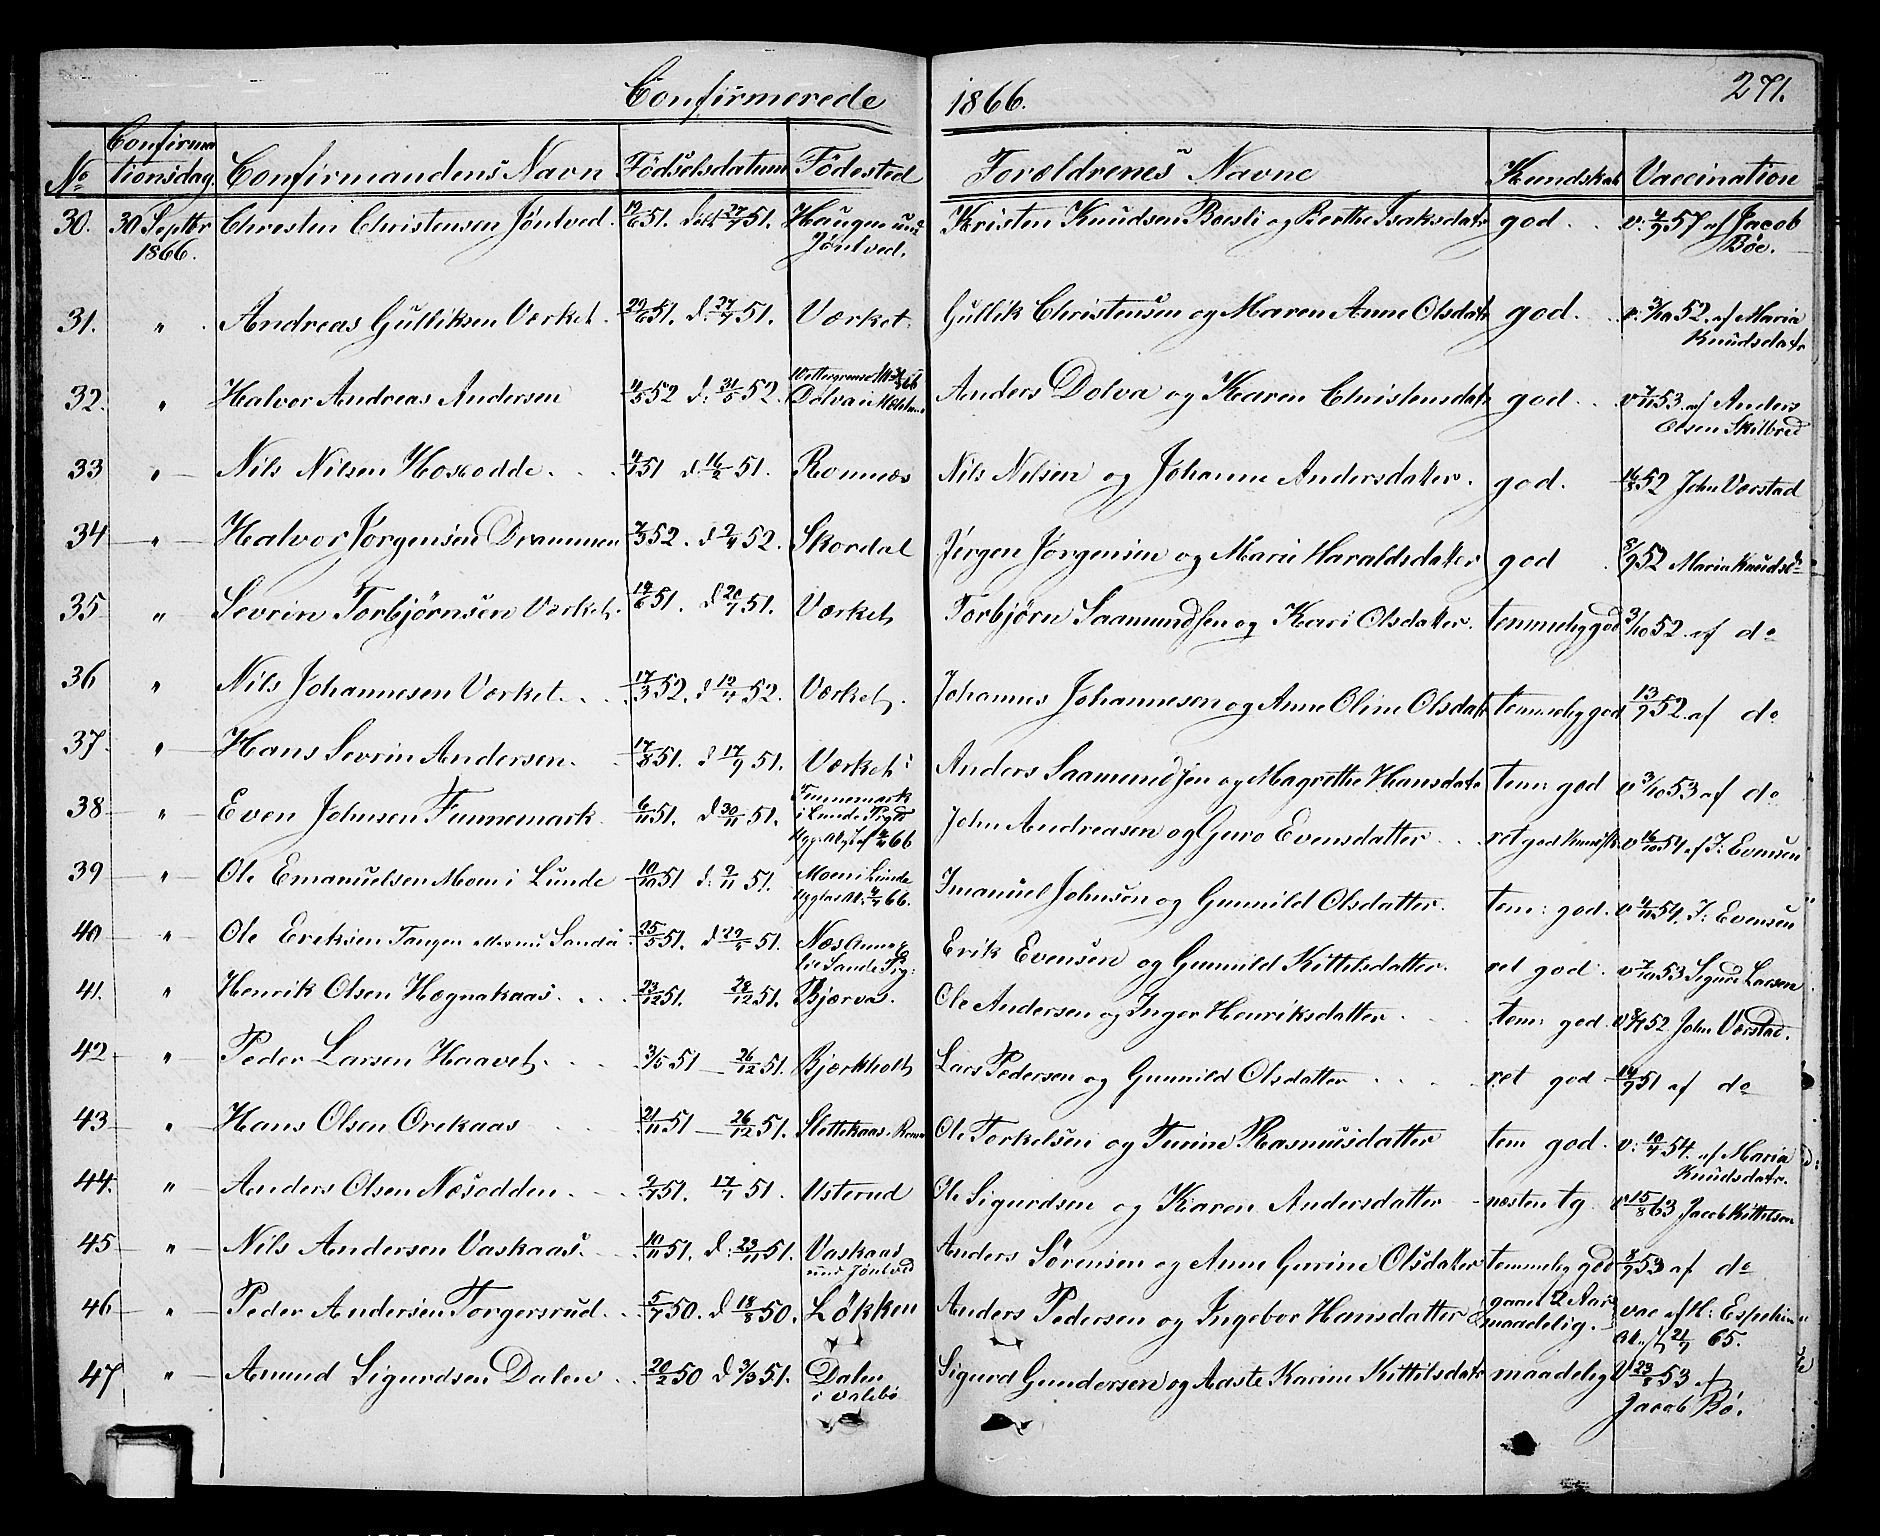 Confirmerede 1866. 271.
No Confirmationsdag Confirmandens Navn Fødselsdatum Fødested Forældrenes Navne Kundskab Vaccination
30. 30 Septbr 1866. Chresten Christensen Jöntved. 19/6 51. døbt 27/7 51. Haugen und Jöntved. Kristen Knudsen Baesli og Berthe Isaksdatr god. v: 4/9 57 af Jacob Böe.
31. " Andreas Gulliksen Værket. 29/6 51. d: 27/7 51. Værket. Gullik Christensen og Maren Anne Olsdatr god. v: 3/10 52. af Maria Knudsdatr
32. " Halvor Andreas Andersen 4/5 52 d: 31/5 52. Dölva i Anders Dolva og Karen Christensdatr god. v 7/11 53. af Anders Olsen Skilbred
33 " Nils Nilsen Hosodde. 4/1 51 d. 16/2 51. Romnæs Nils Nilsen og Johanne Andersdatter. god. 16/8 52 John Værstad
34 " Halvor Jörgensen Drammen 7/3 52. d 9/4 52. Skordal Jörgen Jörgensen og Mari Haraldsdatter god 8/9 52 Maria Knudsd
35 " Sevrin Torbjörnsen Værket. 14/6 51. d 20/7 51. Værket Torbjörn Saamundsen og Kari Olsdatter. temmelig god 3/10 52. af do
36 " Nils Johannesen Værket. 17/3 52. d. 12/4 52. Værket. Johannes Johannesen og Anne Oline Olsdatr temmelig god 13/9 52. af do
37. " Hans Sevrin Andersen. 17/8 51. d 17/9 51. Værket. Anders Saamundsen og Magrethe Hansdatr tem: god v 3/10 53 af do
38 " Even Johnsen Finnemark. 6/11 51. d 30/11 51. Finnemark i Lunde Prgld John Andreasen og Guro Evensdatter. ret god Kundsk v 16/10 54 af J: Evensen
39 " Ole Emanuelsen Moen i Lunde 10/10 51 d: 9/11 51. Moen i Lunde Imanuel Johnsen og Gunnild Olsdatter. tem: god. v 4/11 54, J: Evensen
40 " Ole Eriksen Tangen Sande 25/5 51. d 29/5 51. Næs Sande Prg: Erik Evensen og Gunnild Kittilsdatter. ret god. v 7/10 53 Sigurd Larsen
41. " Henrik Olsen Hægnakaas. 23/12 51. 28/12 51. Bjærvas. Ole Andersen og Inger Henriksdatter tem: god. v 8/9 52 John Værstad.
42 " Peder Larsen Haavet. 3/5 51 26/12 51. Bjærkholt Lars Pedersen og Gunnild Olsdatter ret god 14/9 51 af do
43 " Hans Olsen Orekaas 21/11 51 26/12 51. Slettekaas. Ole Torkelsen og Turine Rasmusdatter tem god. v: 10/7 54. af Maria Knudsdatr.
44. " Anders Olsen Næsodden. 9/7 51. 17/7 51. Usterud Ole Sigurdsen og Karen Andersdatter næsten tg v 15/8 63 Jacob Kittelsen
45 " Nils Andersen Vaskaas. 10/11 51. d: 23/11 51. Vaskaas und Jöntved Anders Sörensen og Anne Gurine Olsdatter temmelig god 8/9 53 af do
46 " Peder Andersen Torgersrud. 5/7 50. d 18/8 50. Lökken Anders Pedersen og Ingebor Hansdatter maadelig. vac af H: 21/7 65.
47 " Amund Sigurdsen Dalen 20/2 50 d 3/3 51. Dalen i Valebö Sigurd Gundersen og Aaste Karine Kittilsdatr maadelig v 23/8 53 af Jacob Bö.